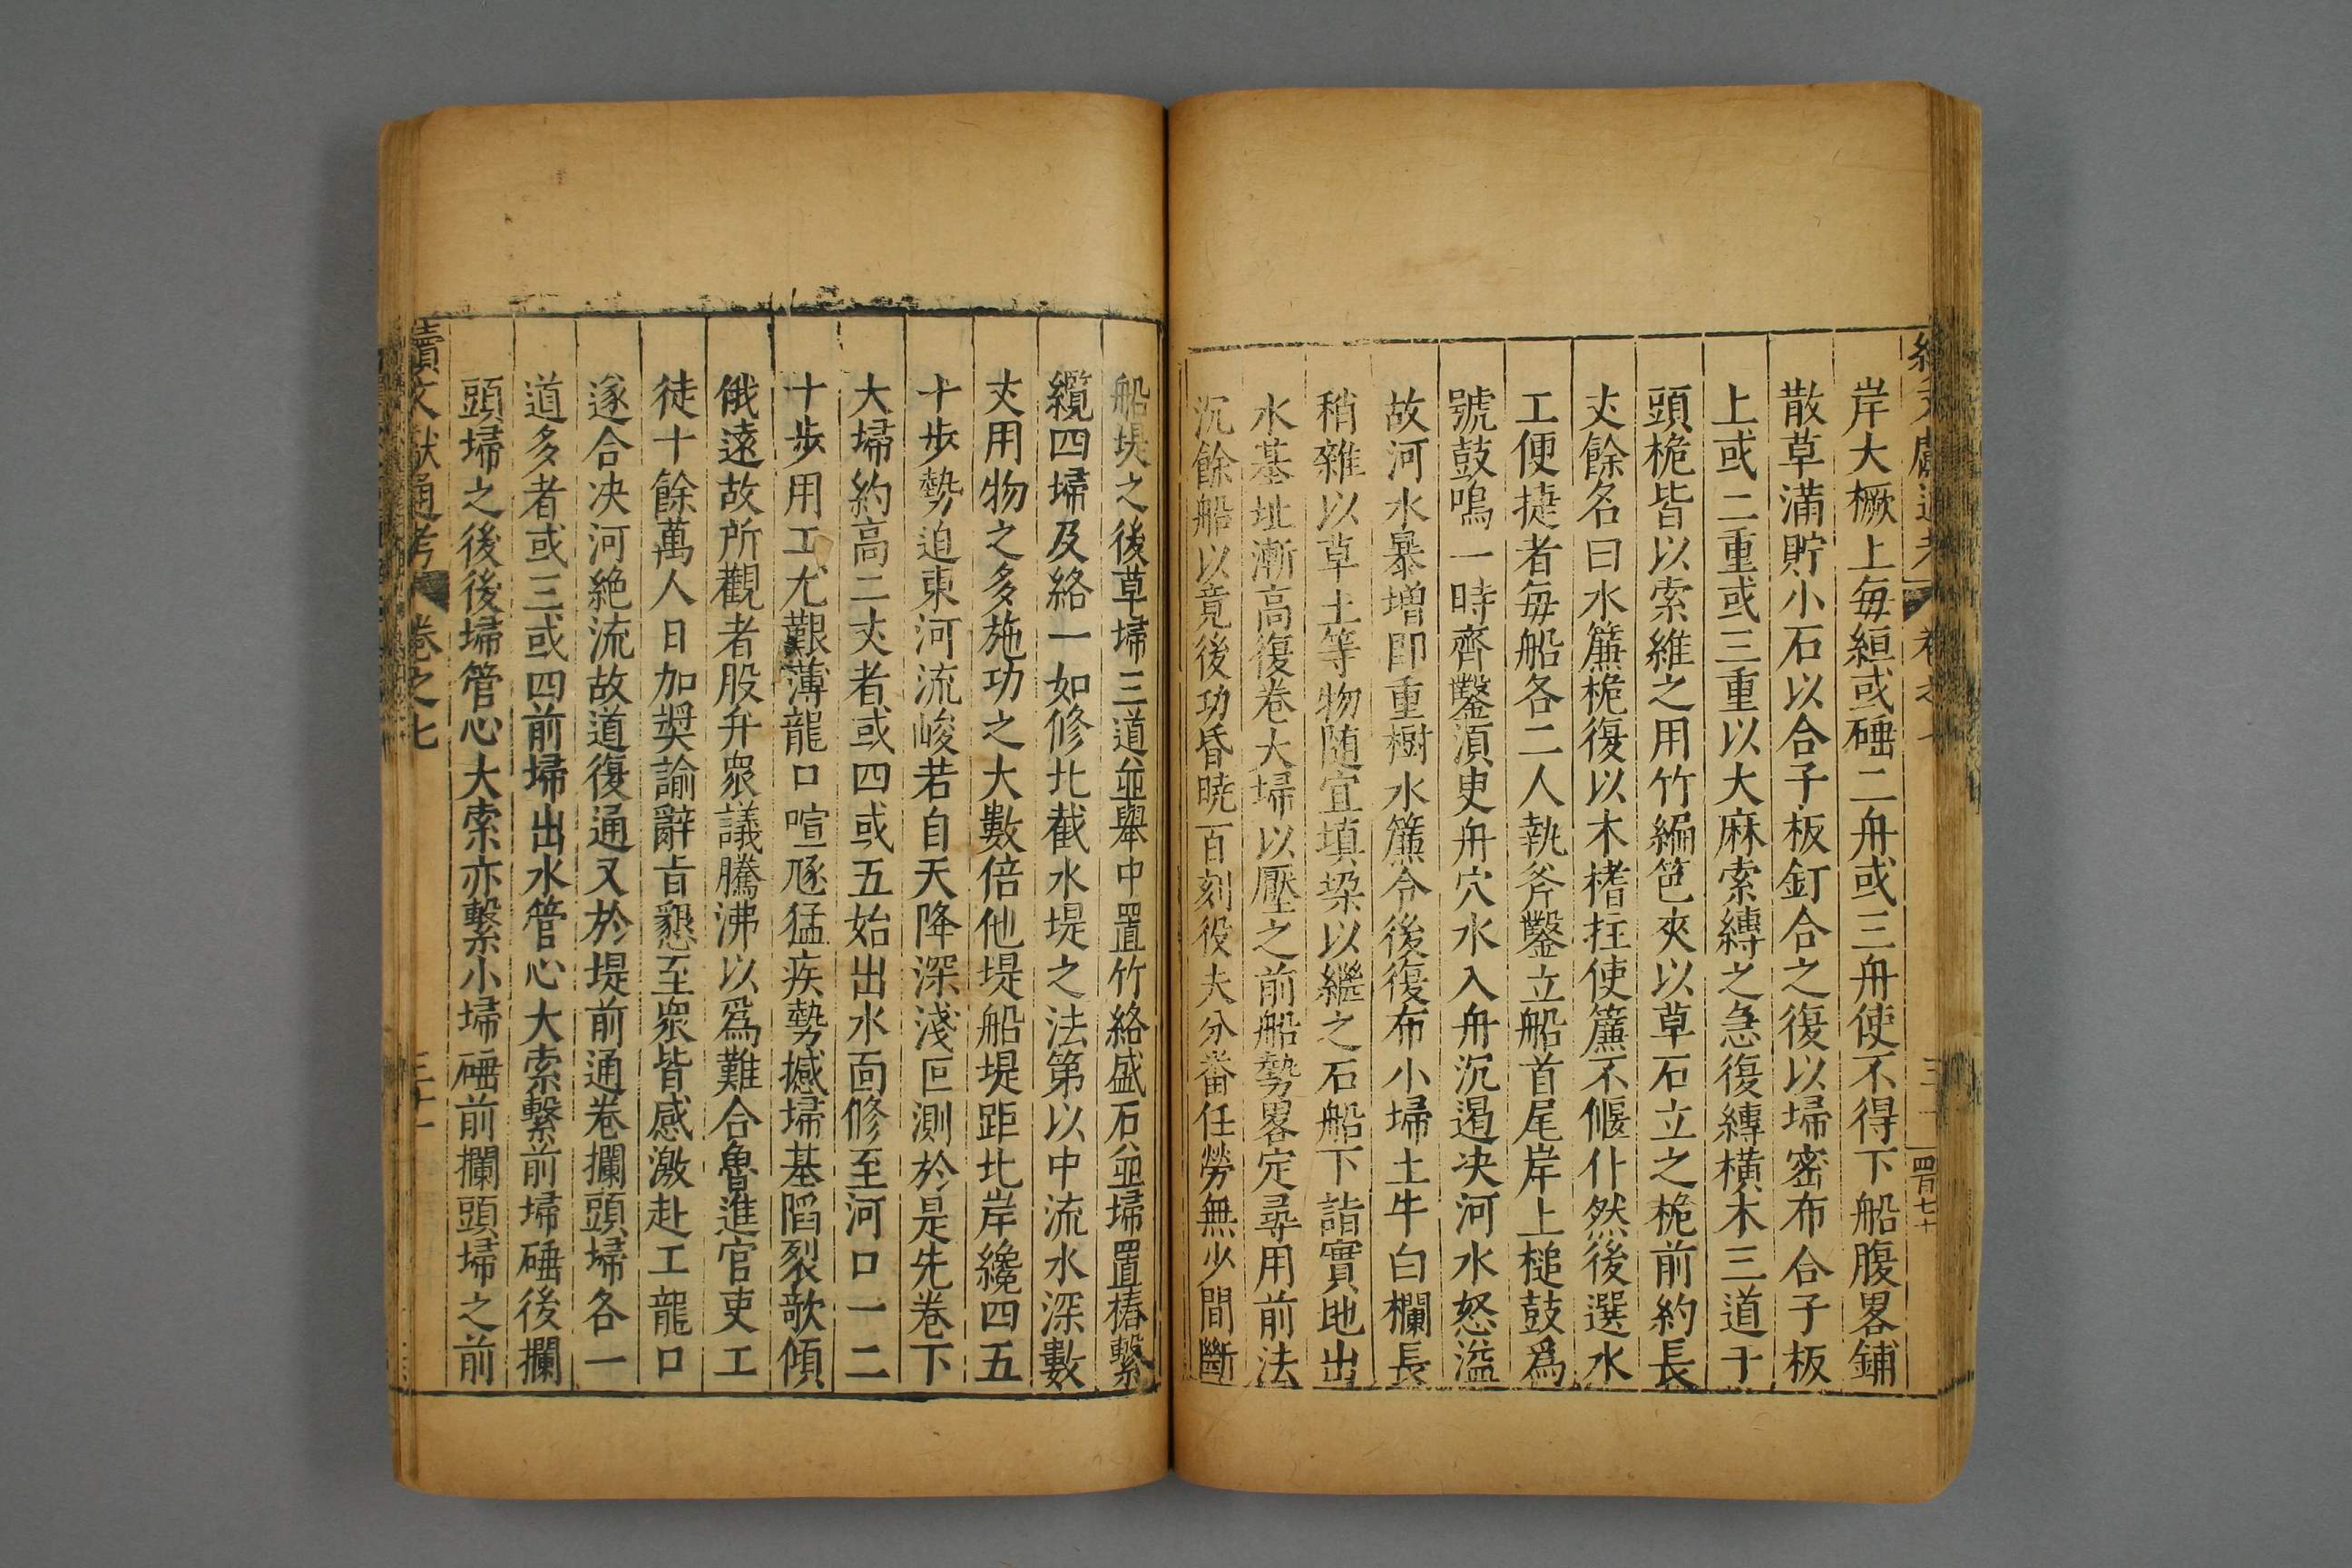 岸大橛上每絙或硾二舟或三舟使不得下船腹畧鋪
散草滿貯小石以合子板釘合之復以埽密布合子板
上或二重或三重以大麻索縳之急復縳橫木三道于
頭桅皆以索維之用竹編笆夾以草石立之桅前約長
丈餘名曰水簾桅復以木楮拄使簾不偃仆然後選水
工便捷者每船各二人執斧鑿立船首尾岸上槌鼓爲
號鼓鳴一時齊鑿湏臾舟穴水入舟沉遏决河水怒溢
故河水暴增即重樹水簾令後復布小埽土牛白欄長
稍雜以草土等物随宜填垜以繼之石船下詣實地出
水基址漸高復卷大埽以壓之前船勢畧定尋用前法
沉餘船以竟後功昏曉百刻役夫分番任勞無少間斷
船堤之後草埽三道並舉中置竹絡盛石並埽置樁繫
纜四埽及絡一如修北截水堤之法第以中流水深數
丈用物之多施功之大數倍他堤船堤距北岸纔四五
十步勢迫東河流峻若自天降深淺叵測於是先卷下
大埽約高二丈者或四或五始出水面修至河口一二
十步用工尤艱薄龍口喧豗猛疾勢撼埽基陷裂欹傾
俄遠故所觀者股弁衆議騰沸以爲難合魯進官吏工
徒十餘萬人日加奬諭辭旨懇至衆皆感激赴工龍口
遂合决河絶流故道復通又於堤前通卷攔頭埽各一
道多者或三或四前埽出水管心大索繫前埽硾後攔
頭埽之後後埽管心大索亦繫小埽硾前攔頭埽之前
續文獻通考 卷之七